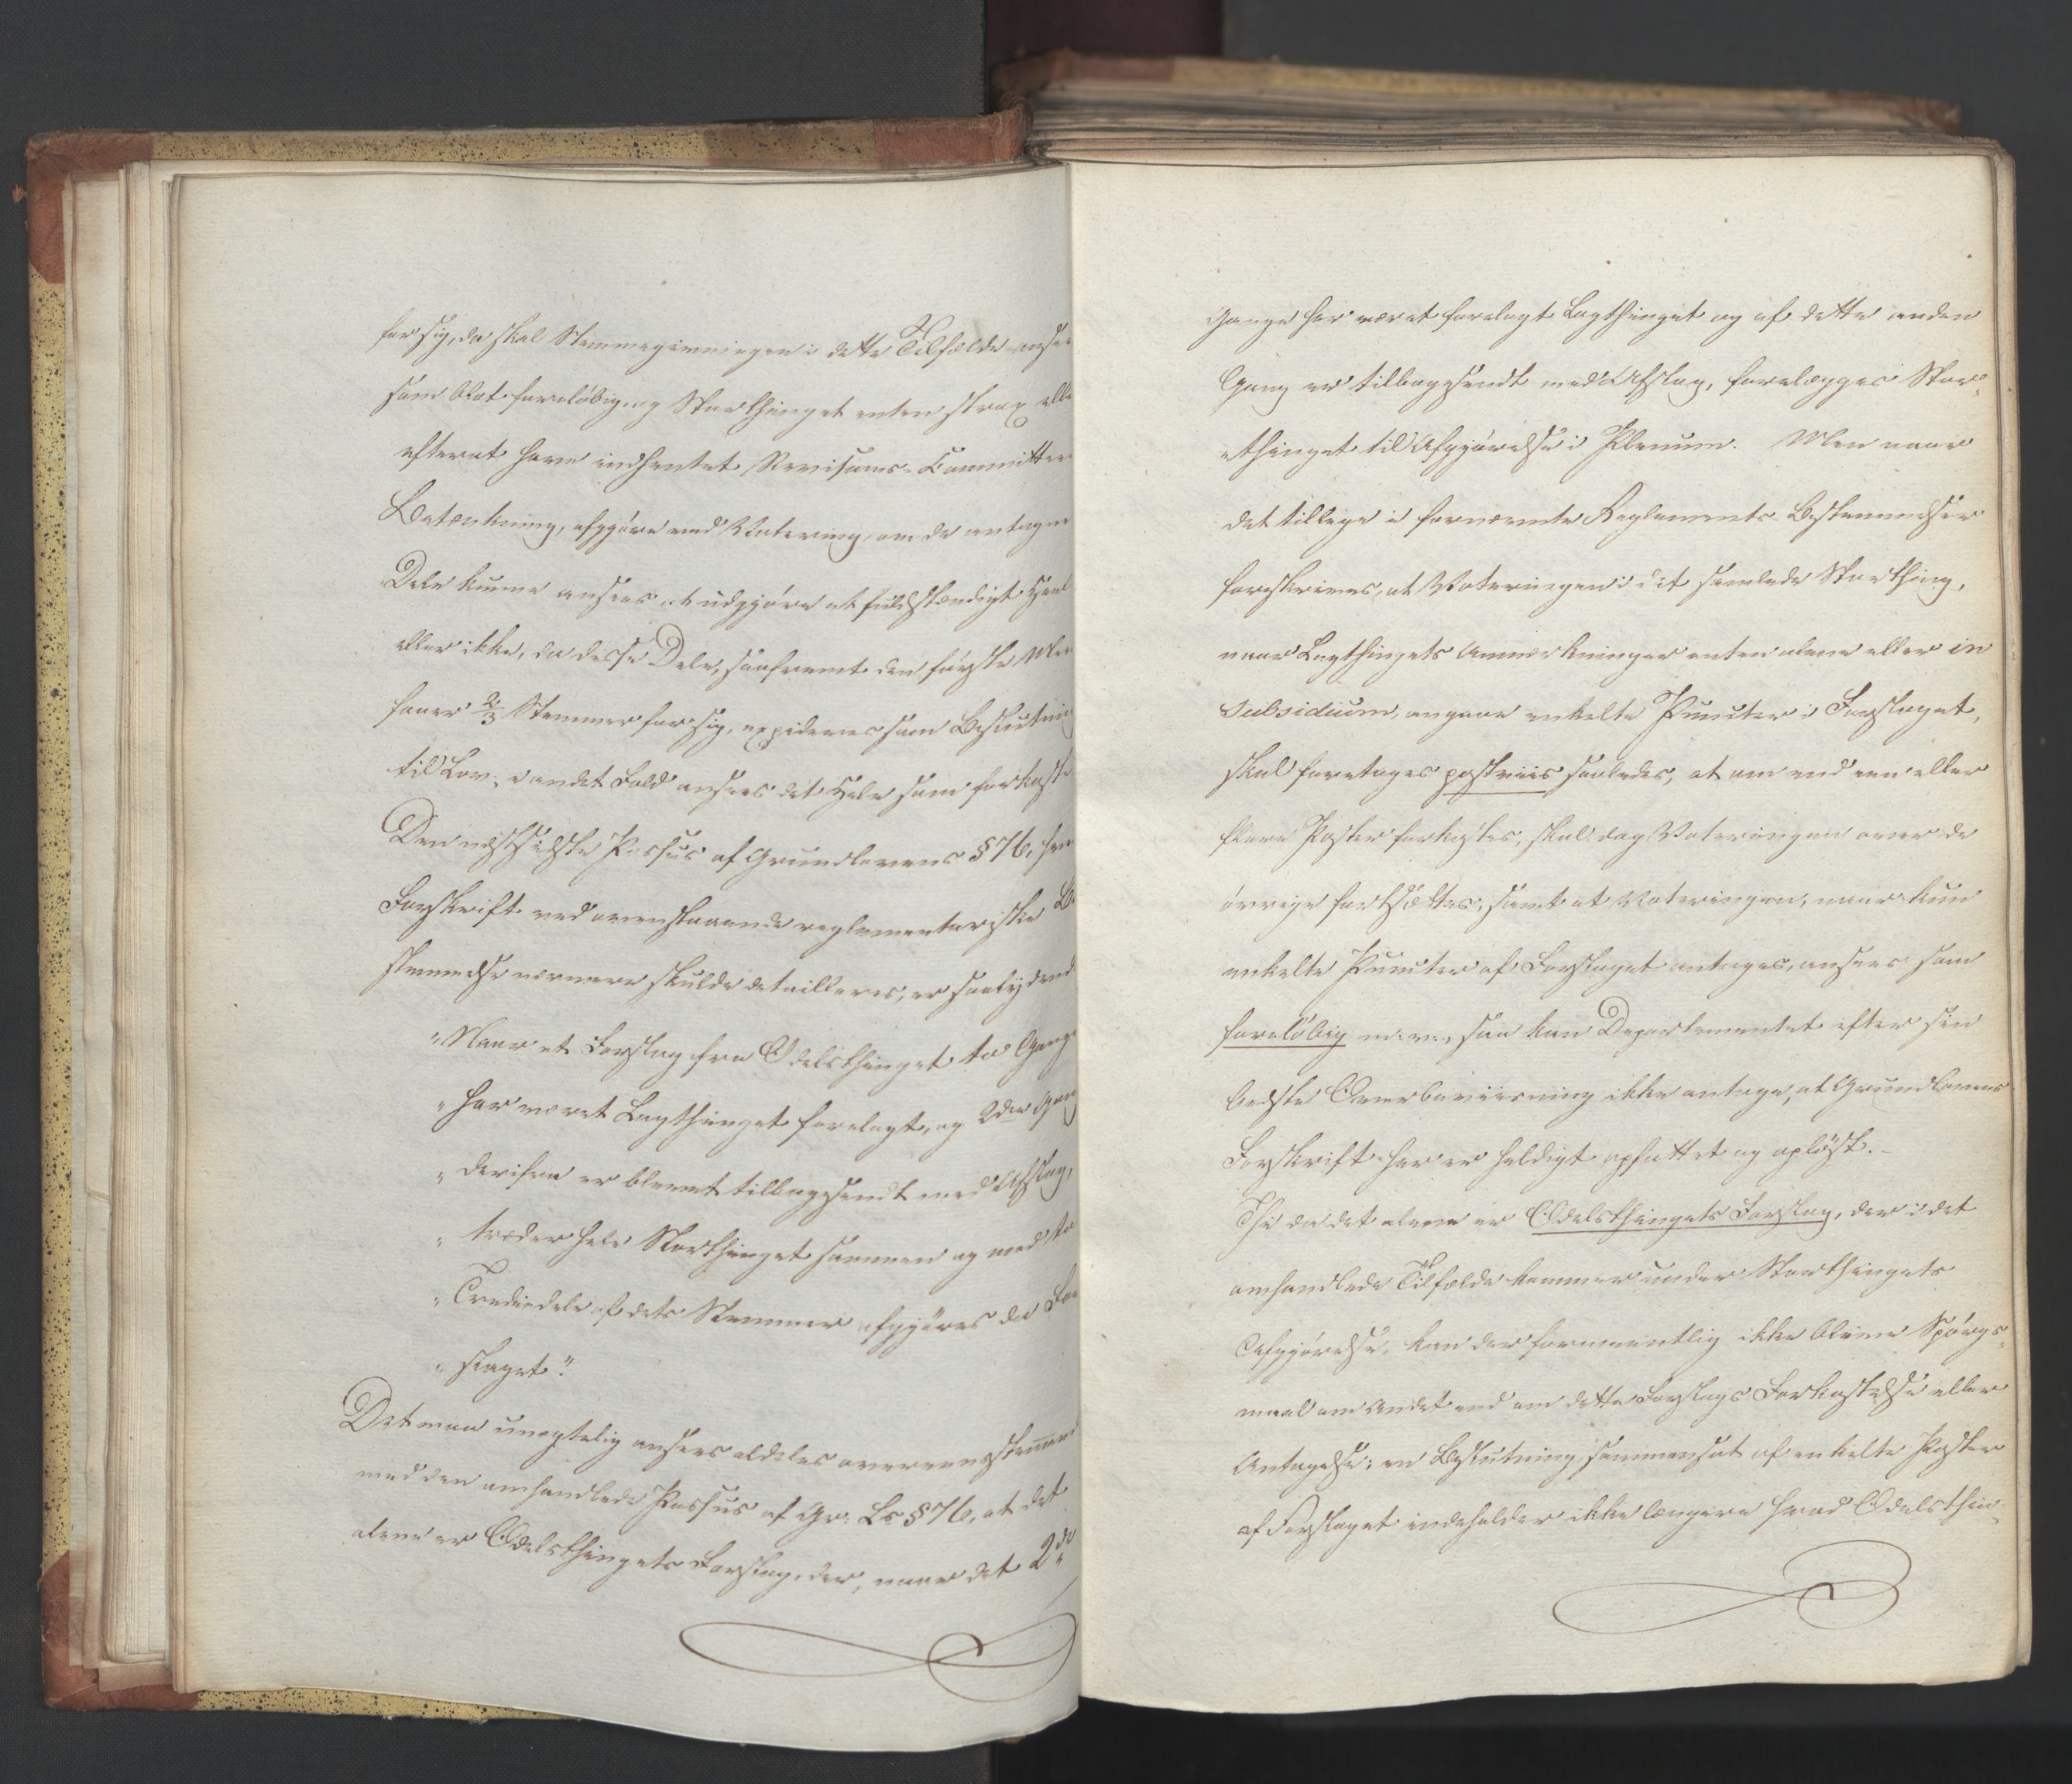 for sig, da skal Stemmegivningen i dette Tilfælde ansee
som blot foreløbig, og Storthinget enten strax elle
efterat have indhentet Revisions-Committee
Betænkning, afgjøre ved Votering, om de antagne
Dele kunne ansees at udgjøre et fuldstændigt Heel
eller ikke, da disse Dele, saafremt den første Men
faaer 2/3 Stemmer for sig, expederes som Beslutnin
til Lov; i andet Fald ansees det Hele som forkast
Den næstsidste Passus af Grundlovens § 76, hve
Forskrift ved ovenstaaende reglementariske Be
stemmelse nærmere skulde detailleres, er saalydend
"Naar et Forslag fra Odelsthinget to Gang
" har været Lagthinget forelagt, og 2den Gang
" derifra er blevet tilbagesendt med Afslag,
" træder hele Storthinget sammen og med to
" Trediedele af dets Stemmer afgjøres da For
" slaget".
Det maa unegtelig ansees aldeles overeensstemmend
med den omhandlede Passus af Gr: Ls § 76, at det
alene er Odelsthingets Forslag, der, naar det 2de
Gange har været forelagt Lagthinget og af dette anden
Gang er tilbagesendt med Afslag, forelægges Stor-
thinget til Afgjørelse i Plenum. Men naar
det tillige i fornævnte Reglements-Bestemmelser
foreskrives, at Voteringen i det samlede Storthing,
naar Lagthingets Anmærkninger enten alene eller in
subsidium, angaae enkelte Puncter i Forslaget,
skal foretages postviis saaledes, at om end een eller
flere Poster forkastes, skal dog Voteringen over de
øvrige fortsættes, samt at Voteringen, naar kun
enkelte Puncter af Forslaget antages, ansees som
foreløbig m: v:, saa kan Departementet efter sin
bedste Overbeviisning ikke antage, at Grundlovens
Forskrift her er heldigt opfattet og opløst.-
Thi da det alene er Odelsthingets Forslag, der i det
omhandlede Tilfælde kommer under Storthingets
Afgjørelse, kan der formeentlig ikke blive Spørgs-
maal om Andet end om dette Forslags Forkastelse eller
Antagelse; en Beslutning sammensat af enkelte Poster
af Forslaget indeholder ikke længere hvad Odelsthin-